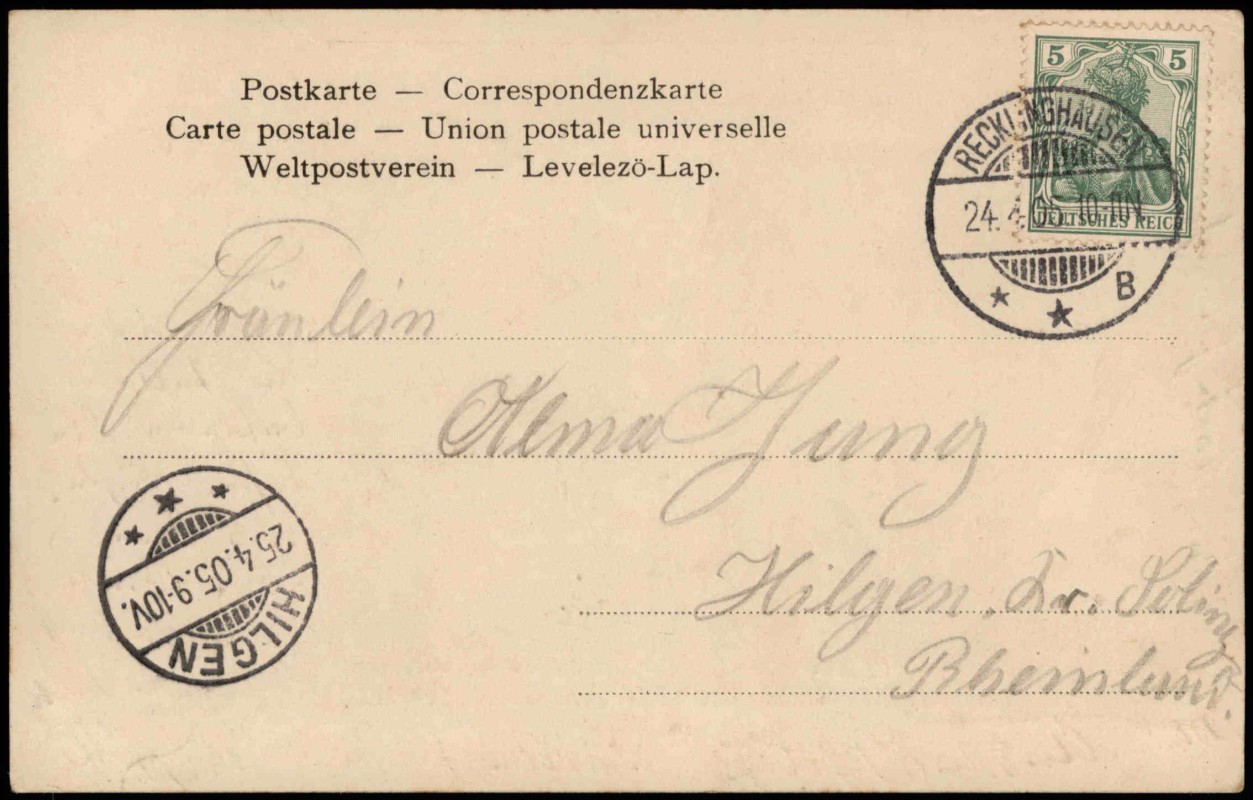 Postkarte — Correspondenzkarte
Carte postale — Union postale universelle
Weltpostverein — Levelezö-Lap.
5 5
DEUTSCHES REICH
RECKLINGHAUSEN
24.4.05. 10-11V.
B
Fräulein
Alma Jung
Hilgen, Kr. Soling
Rheinland.
25.4.05.9-10V.
HILGEN